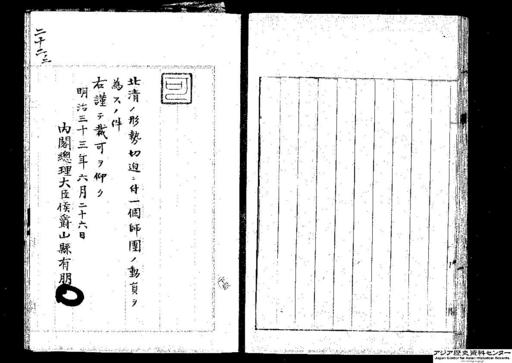 二十二ノ三
北清ノ形勢切迫ニ付一個師團ノ動員ヲ
為スノ件
右謹テ裁可ヲ仰ク
明治三十三年六月二十六日
内閣總理大臣侯爵山縣有朋
アジア歴史資料センター
Japan Center for Asian Historical Records